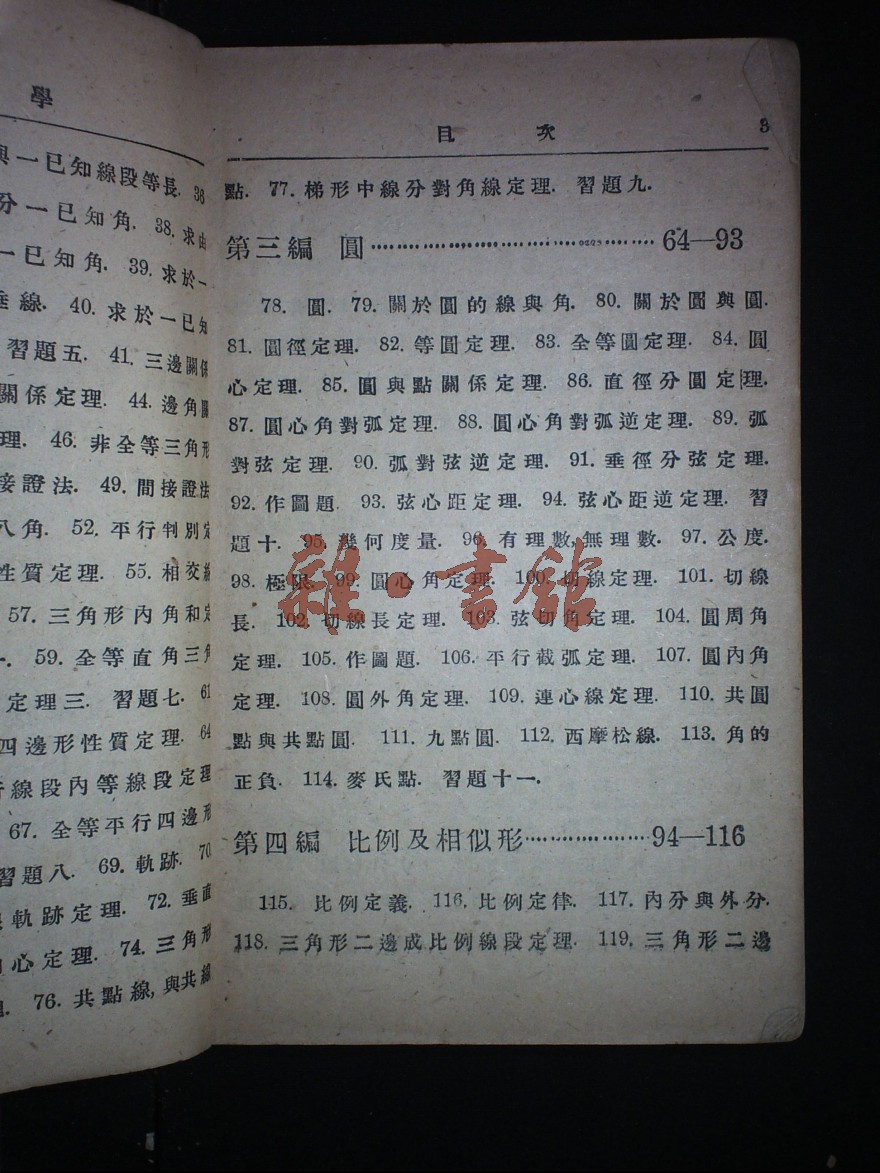 學
與一已知線段等長. 36
分一已知角. 38. 求由
一已知角. 39. 求於一
垂線. 40. 求於一已知
習題五. 41. 三邊關係
關係定理. 44. 邊角關
理. 46. 非全等三角形
接證法. 49. 間接證法
八角. 52. 平行判別定
性質定理. 55. 相交線
57. 三角形內角和定
59. 全等直角三角
定理三. 習題七. 61
四邊形性質定理. 64
行線段內等線段定理
67. 全等平行四邊形
習題八. 69. 軌跡. 70
軌跡定理. 72. 垂直
心定理. 74. 三角形
76. 共點線,與共線
目次 3
點. 77. 梯形中線分對角線定理. 習題九.
第三編 圓 64—93
78. 圓. 79. 關於圓的線與角. 80. 關於圓與圓.
81. 圓徑定理. 82. 等圓定理. 83. 全等圓定理. 84. 圓
心定理. 85. 圓與點關係定理. 86. 直徑分圓定理.
87. 圓心角對弧定理. 88. 圓心角對弧逆定理. 89. 弧
對弦定理. 90. 弧對弦逆定理. 91. 垂徑分弦定理.
92. 作圖題. 93. 弦心距定理. 94. 弦心距逆定理. 習
題十. 95. 幾何度量. 96. 有理數,無理數. 97. 公度.
98. 極限. 99. 圓心角定理. 100. 切線定理. 101. 切線
長. 102. 切線長定理. 103. 弦切角定理. 104. 圓周角
定理. 105. 作圖題. 106. 平行截弧定理. 107. 圓內角
定理. 108. 圓外角定理. 109. 連心線定理. 110. 共圓
點與共點圓. 111. 九點圓. 112. 西摩松線. 113. 角的
正負. 114. 麥氏點. 習題十一.
第四編 比例及相似形 94—116
115. 比例定義. 116. 比例定律. 117. 內分與外分.
118. 三角形二邊成比例線段定理. 119. 三角形二邊
雜·書館